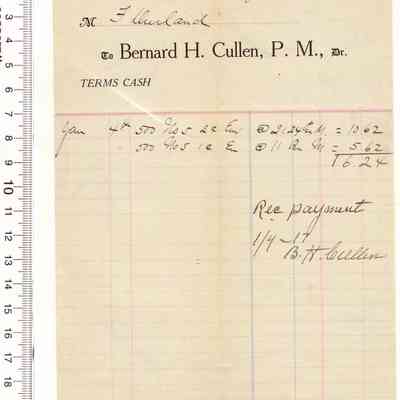 M F Curland
To Bernard H. Cullen, P. M., Dr.
TERMS CASH
Jan 4th 500 No 5 2c Env @ 21.24 Per M. = 10.62
500 No 5 1c E @ 11 Per M = 5.62
16.24
Rec payment
1/4-17
B. H. Cullen
3
4
5
6
7
8
9
10
11
12
13
14
15
16
17
18